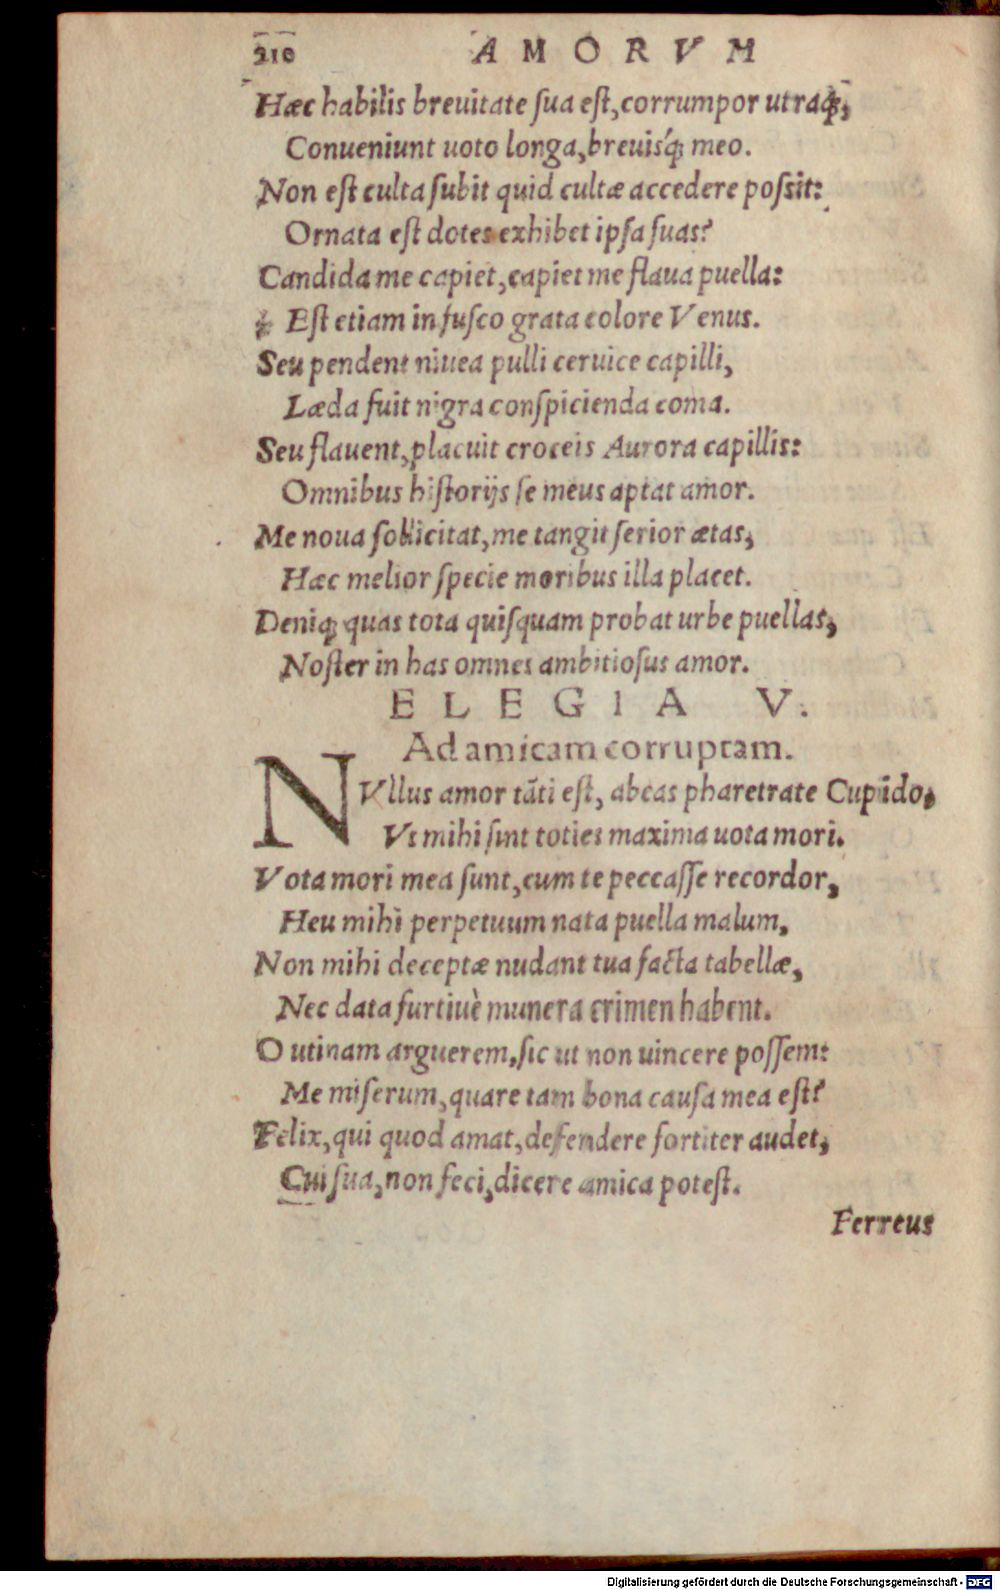 210 AMORVM
Hæc habilis breuitate sua est, corrumpor utraq;,
Conueniunt uoto longa, breuisq́; meo.
Non est culta subit quid cultæ accedere possit:
Ornata est dotes exhibet ipsa suas?
Candida me capiet, capiet me flaua puella:
Est etiam in fusco grata colore Venus.
Seu pendent niuea pulli ceruice capilli,
Læda fuit nigra conspicienda coma.
Seu flauent, placuit croceis Aurora capillis:
Omnibus historijs se meus aptat amor.
Me noua sollicitat, me tangit serior ætas,
Hæc melior specie moribus illa placet.
Deniq; quas tota quisquam probat urbe puellas,
Noster in has omnes ambitiosus amor.
ELEGIA V.
Ad amicam corruptam.
NVllus amor tāti est, abeas pharetrate Cupido,
Vt mihi sint toties maxima uota mori.
Vota mori mea sunt, cum te peccasse recordor,
Heu mihi perpetuum nata puella malum,
Non mihi deceptæ nudant tua facta tabellæ,
Nec data furtiuè munera crimen habent.
O utinam arguerem, sic ut non uincere possem:
Me miserum, quare tam bona causa mea est?
Felix, qui quod amat, defendere fortiter audet,
Cui sua, non feci, dicere amica potest.
Ferreus
Digitalisierung gefördert durch die Deutsche Forschungsgemeinschaft - DFG